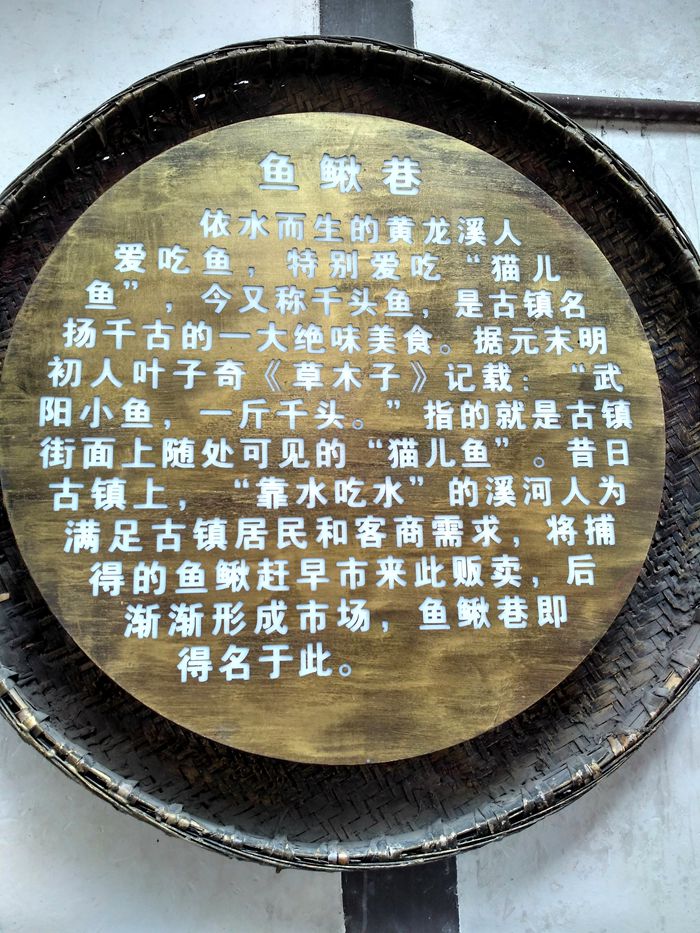 鱼鳅巷
依水而生的黄龙溪人
爱吃鱼，特别爱吃“猫儿
鱼”，今又称千头鱼，是古镇名
扬千古的一大绝味美食。据元末明
初人叶子奇《草木子》记载：“武
阳小鱼，一斤千头。”指的就是古镇
街面上随处可见的“猫儿鱼”。昔日
古镇上，“靠水吃水”的溪河人为
满足古镇居民和客商需求，将捕
得的鱼鳅赶早市来此贩卖，后
渐渐形成市场，鱼鳅巷即
得名于此。